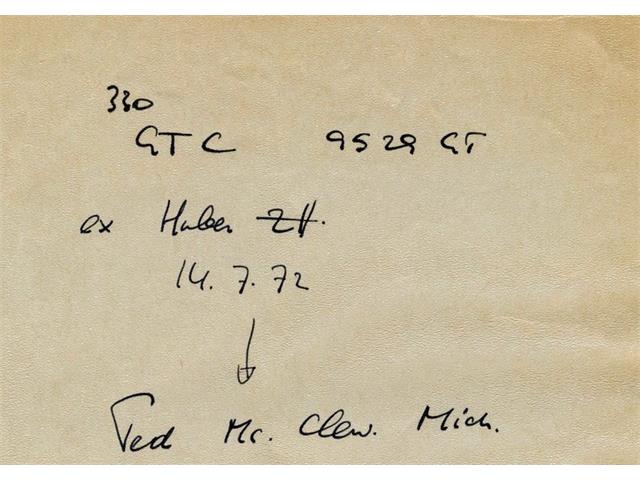 330
GTC 9529 GT
ex Huber ZH.
14. 7. 72
Ted Mc. Clew. Mich.